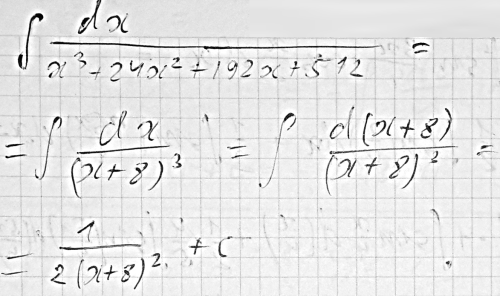 ∫ dx / (x³ + 24x² + 192x + 512) =
= ∫ dx / (x+8)³ = ∫ d(x+8) / (x+8)³ =
= 1 / 2(x+8)² + C